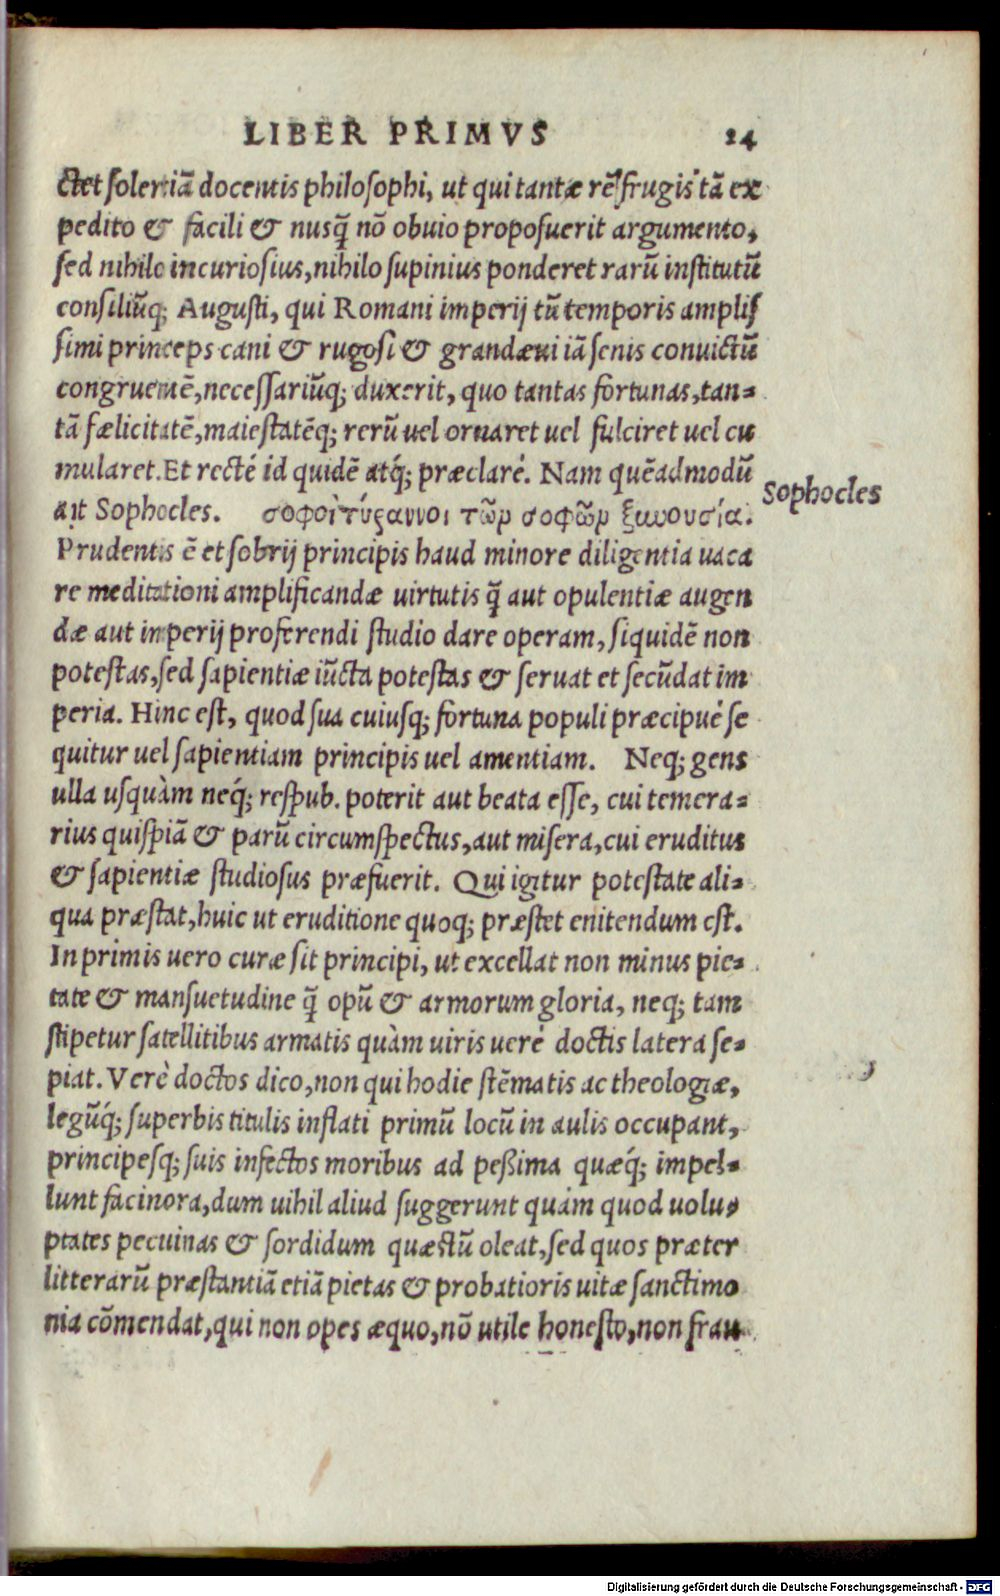 LIBER PRIMVS 24
ctet solertiã docentis philosophi, ut qui tantæ rẽ frugis tã ex
pedito & facili & nusq̃ nõ obuio proposuerit argumento,
sed nihilo incuriosius, nihilo supinius ponderet rarũ institutũ
consiliũq; Augusti, qui Romani imperij tũ temporis amplis
simi princeps cani & rugosi & grandæui iã senis conuictũ
congruentẽ, necessariũq; duxerit, quo tantas fortunas, tan-
tã fælicitatẽ, maiestatẽq; rerũ uel ornaret uel fulciret uel cu
mularet. Et recté id quidẽ atq́; præclaré. Nam quẽadmodũ
Sophocles
ait Sophocles. σοφοὶ τύραννοι τῶν σοφῶν ξυνουσία.
Prudentis ẽ et sobrij principis haud minore diligentia uaca
re meditationi amplificandæ uirtutis q̃ aut opulentiæ augen
dæ aut imperij proferendi studio dare operam, siquidẽ non
potestas, sed sapientiæ iũcta potestas & seruat et secũdat im
peria. Hinc est, quod sua cuiusq; fortuna populi præcipué se
quitur uel sapientiam principis uel amentiam. Neq; gens
ulla usquàm neq́; respub. poterit aut beata esse, cui temera-
rius quispiã & parũ circumspectus, aut misera, cui eruditus
& sapientiæ studiosus præfuerit. Qui igitur potestate ali-
qua præstat, huic ut eruditione quoq; præstet enitendum est.
In primis uero curæ sit principi, ut excellat non minus pie-
tate & mansuetudine q̃ opũ & armorum gloria, neq; tam
stipetur satellitibus armatis quàm uiris uerè doctis latera se-
piat. Verè doctos dico, non qui hodie stẽmatis ac theologiæ,
legũq́; superbis titulis inflati primũ locũ in aulis occupant,
principesq; suis infectos moribus ad peßima quæq́; impel-
lunt facinora, dum uihil aliud suggerunt quàm quod uolu-
ptates pecuinas & sordidum quæstũ oleat, sed quos præter
litterarũ præstantiã etiã pietas & probatioris uitæ sanctimo
nia cõmendat, qui non opes æquo, nõ utile honesto, non frau
Digitalisierung gefördert durch die Deutsche Forschungsgemeinschaft - DFG